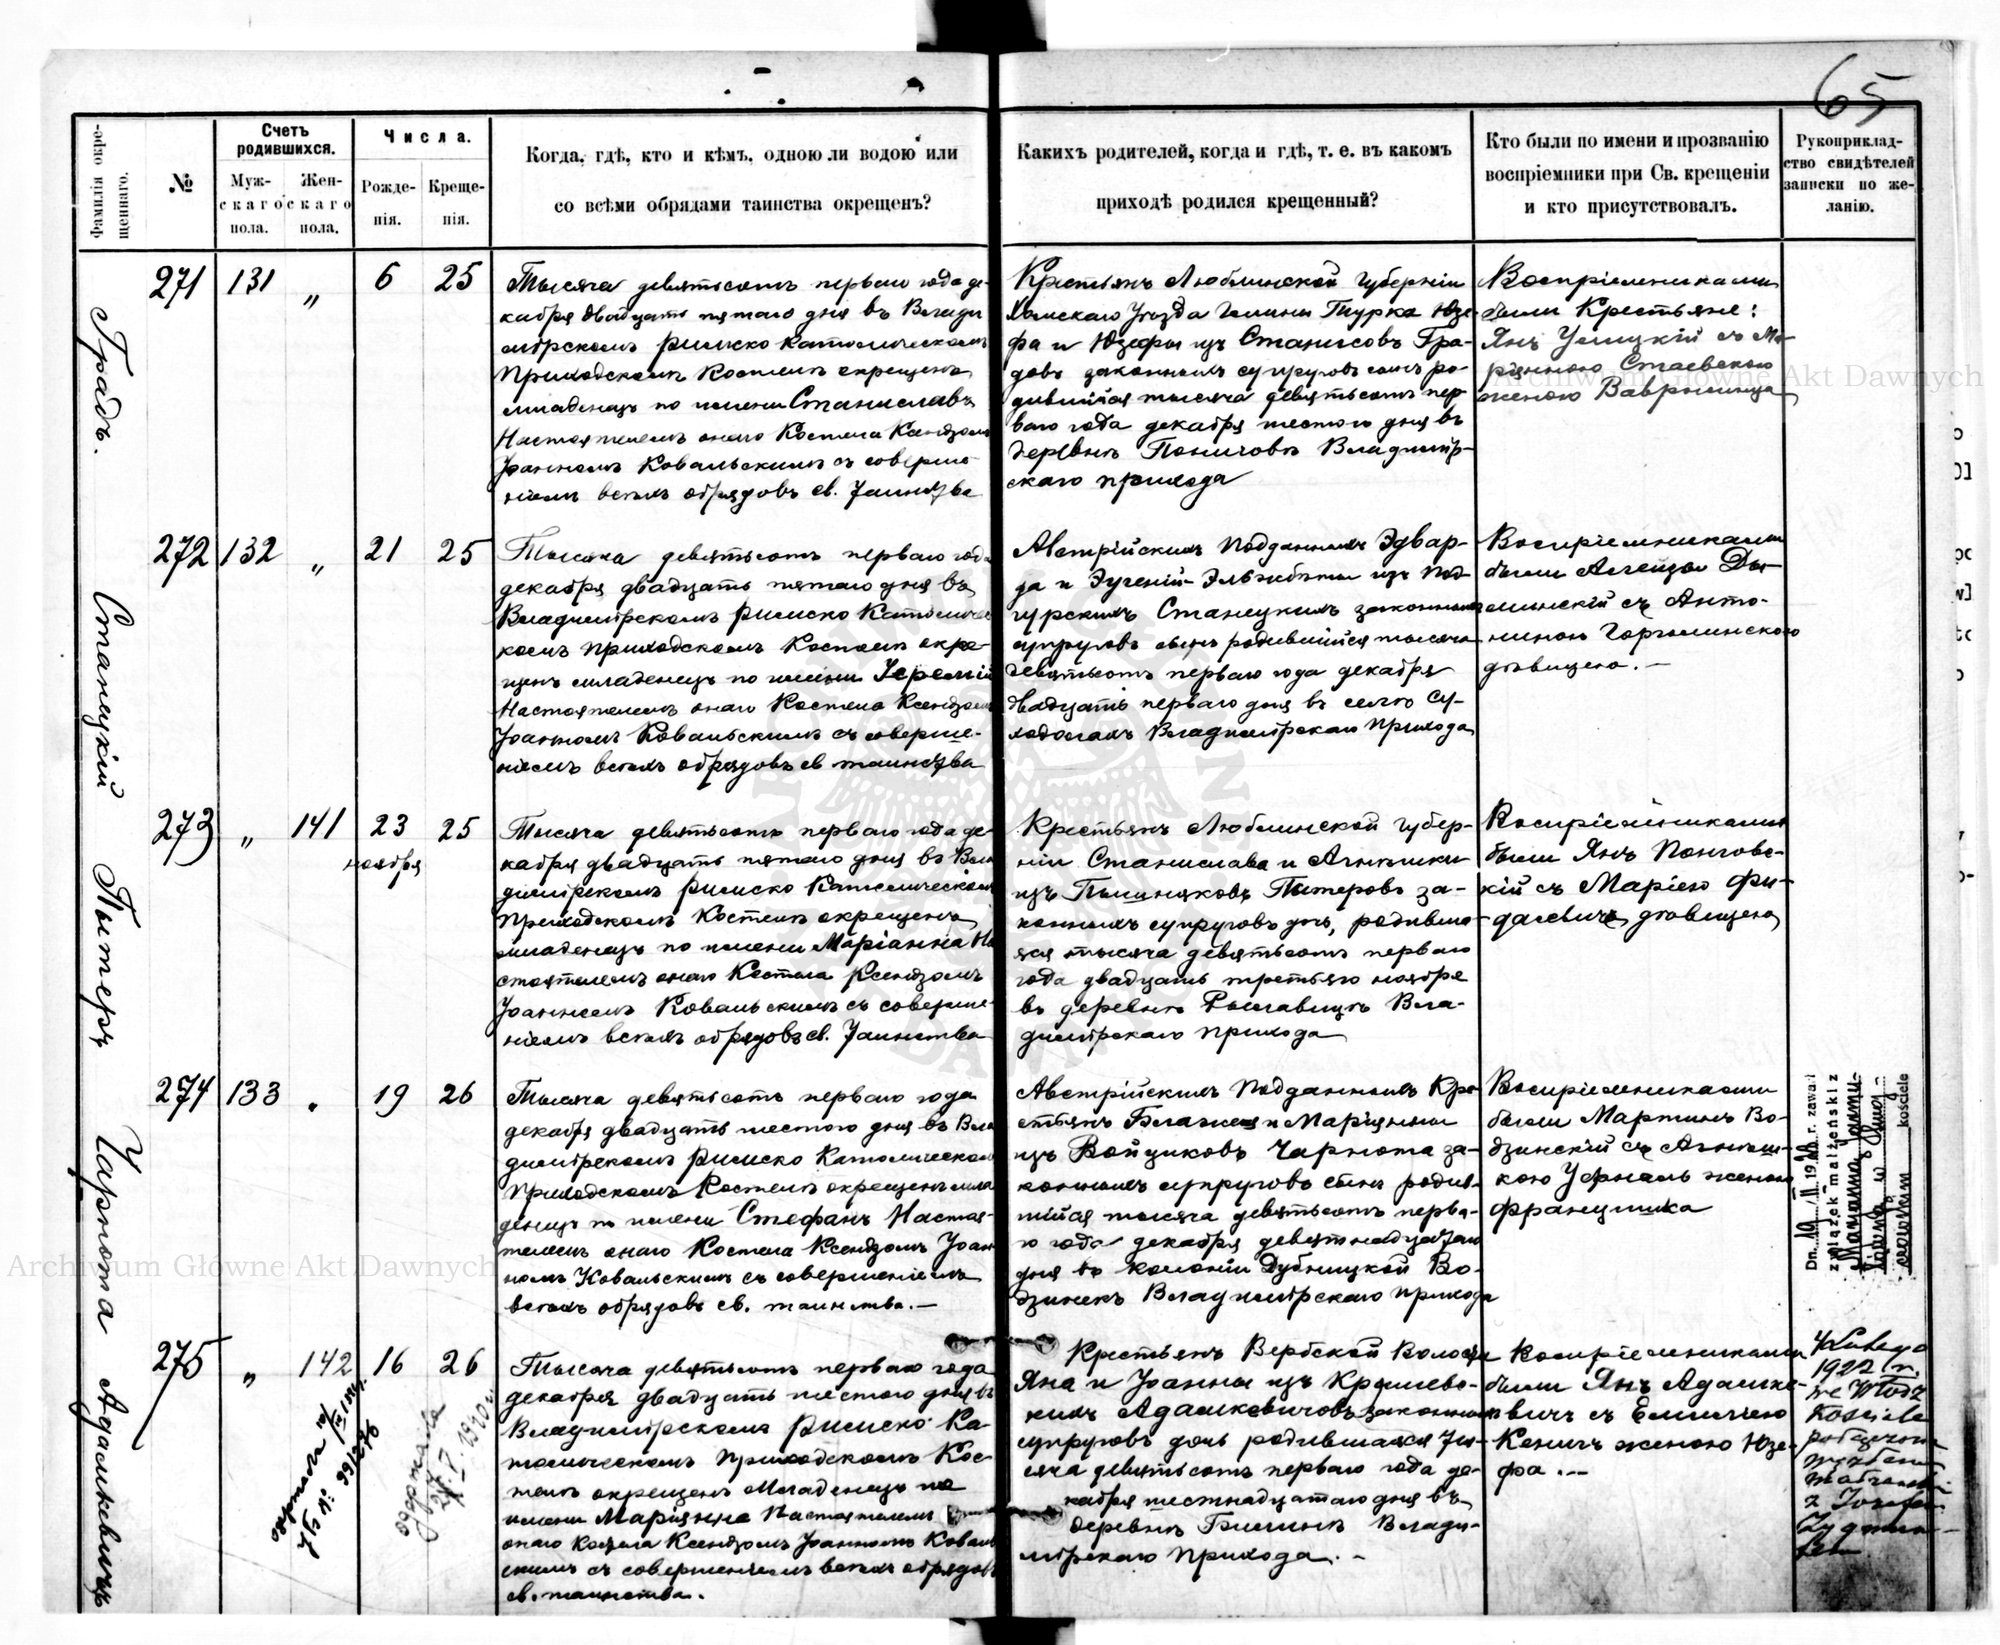 65
Фамилія окре-
щеннаго.
№
Счетъ
родившихся.
Муж-
скаго
пола.
Жен-
скаго
пола.
Числа.
Рожде-
нія.
Креще-
нія.
Когда, гдѣ, кто и кѣмъ, одною ли водою или
со всѣми обрядами таинства окрещенъ?
Какихъ родителей, когда и гдѣ, т. е. въ какомъ
приходѣ родился крещенный?
Кто были по имени и прозванію
воспріемники при Св. крещеніи
и кто присутствовалъ.
Рукоприклад-
ство свидѣтелей
записки по же-
ланію.
Градъ.
271 131 „ 6 25
Тысяча девятьсотъ перваго года де-
кабря двадцать пятаго дня въ Влади
мірскомъ римско Католическомъ
Приходскомъ Костелѣ окрещенъ
младенецъ по имени Станиславъ
Настоятелемъ онаго Костела Ксендзомъ
Іоанномъ Ковальскимъ съ соверше-
ніемъ всѣхъ обрядовъ св. Таинства
Крестьянъ Люблинской Губерніи
Холмскаго Уѣзда Гмины Турка Юзе-
фа и Юзефы изъ Станисовъ Гра-
довъ законныхъ супруговъ сынъ ро-
дившійся тысяча девятьсотъ пер-
ваго года декабря шестого дня въ
деревнѣ Владимір-
скаго прихода
Воспріемниками
были Крестьяне:
Янъ съ Ма-
рянною Стаевскою
женою Вавржинца
Станицкій
272 132 „ 21 25
Тысяча девятьсотъ перваго года
декабря двадцать пятаго дня въ
Владимірскомъ римско Католичес
комъ приходскомъ Костелѣ окре-
щенъ младенецъ по имени Іеремій
Настоятелемъ онаго Костела Ксендзомъ
Іоанномъ Ковальскимъ съ соверше-
ніемъ всѣхъ обрядовъ св таинства
Австрійскихъ Подданныхъ Эдвар-
да и Эугеній-Эльжбеты изъ Под-
гурскихъ Станецкихъ законныхъ
супруговъ сынъ родившійся тысяча
девятьсотъ перваго года декабря
двадцать перваго дня въ селѣ Су-
ходолахъ Владимірскаго Прихода
Воспріемниками
были
минскій съ Анто-
ниною
дѣвицею.—
Пытеръ
273 „ 141 23 25
ноября
Тысяча девятьсотъ перваго года де-
кабря двадцать пятаго дня въ Вла
димірскомъ римско Католическомъ
приходскомъ Костелѣ окрещенъ
младенецъ по имени Маріанна На
стоятелемъ онаго Костела Ксендзомъ
Іоанномъ Ковальскимъ съ соверше-
ніемъ всѣхъ обрядовъ св. Таинства
Крестьянъ Люблинской Губер-
ніи Станислава и Агнѣшки
изъ Пытеровъ за-
конныхъ супруговъ дочь, родивша-
яся тысяча девятьсотъ перваго
года двадцать третьяго ноября
въ деревнѣ Вла-
димірскаго прихода
Воспріемниками
были Янъ Понговс-
кій съ Маріею Фи-
далевичъ дѣвицею
Чарнота
274 133 „ 19 26
Тысяча девятьсотъ перваго года
декабря двадцать шестого дня въ Вла
димірскомъ римско Католическомъ
Приходскомъ Костелѣ окрещенъ мла
денецъ по имени Стефанъ Настоя-
телемъ онаго Костела Ксендзомъ Іоан
номъ Ковальскимъ съ совершеніемъ
всѣхъ обрядовъ св. таинства.—
Австрійскихъ Подданныхъ Кре
стьянъ Блажея и Маріянны
изъ Войциковъ Чарнота за-
конныхъ супруговъ сынъ родив-
шійся тысяча девятьсотъ перва-
го года декабря девятнадцатаго
дня въ колоніи Дубницкой Во-
дзинекъ Владимірскаго прихода
Воспріемниками
были Мартинъ Во-
дзинскій съ Агнѣш-
кою женою
Францишка
Dn. 19 II 19 r. zawarł
związek małżeński z
Marianną
w
kościele
Адамкевичъ
275 „ 142 16 26
Тысяча девятьсотъ перваго года
декабря двадцать шестого дня въ
Владимірскомъ римско Ка-
толическомъ Приходскомъ Кос-
телѣ окрещенъ Младенецъ по
имени Маріянна Настоятелемъ
онаго Костела Ксендзомъ Іоанномъ Коваль
скимъ съ совершеніемъ всѣхъ обрядовъ
св. таинства.
Крестьянъ Вербской Волости
Яна и Іоанны изъ Крашевс-
кихъ Адамкевичовъ законныхъ
супруговъ дочь родившаяся Ты-
сяча девятьсотъ перваго года де-
кабря шестнадцатаго дня въ
деревнѣ Влади-
мірскаго Прихода.-
Воспріемниками
были Янъ Адамке-
вичъ съ Емиліею
Кеничъ женою Юзе-
фа.—
4 Lutego
1922 r.
we Włodz
Kościele
z Józefem
Archiwum Główne Akt Dawnych
Archiwum Główne Akt Dawnych